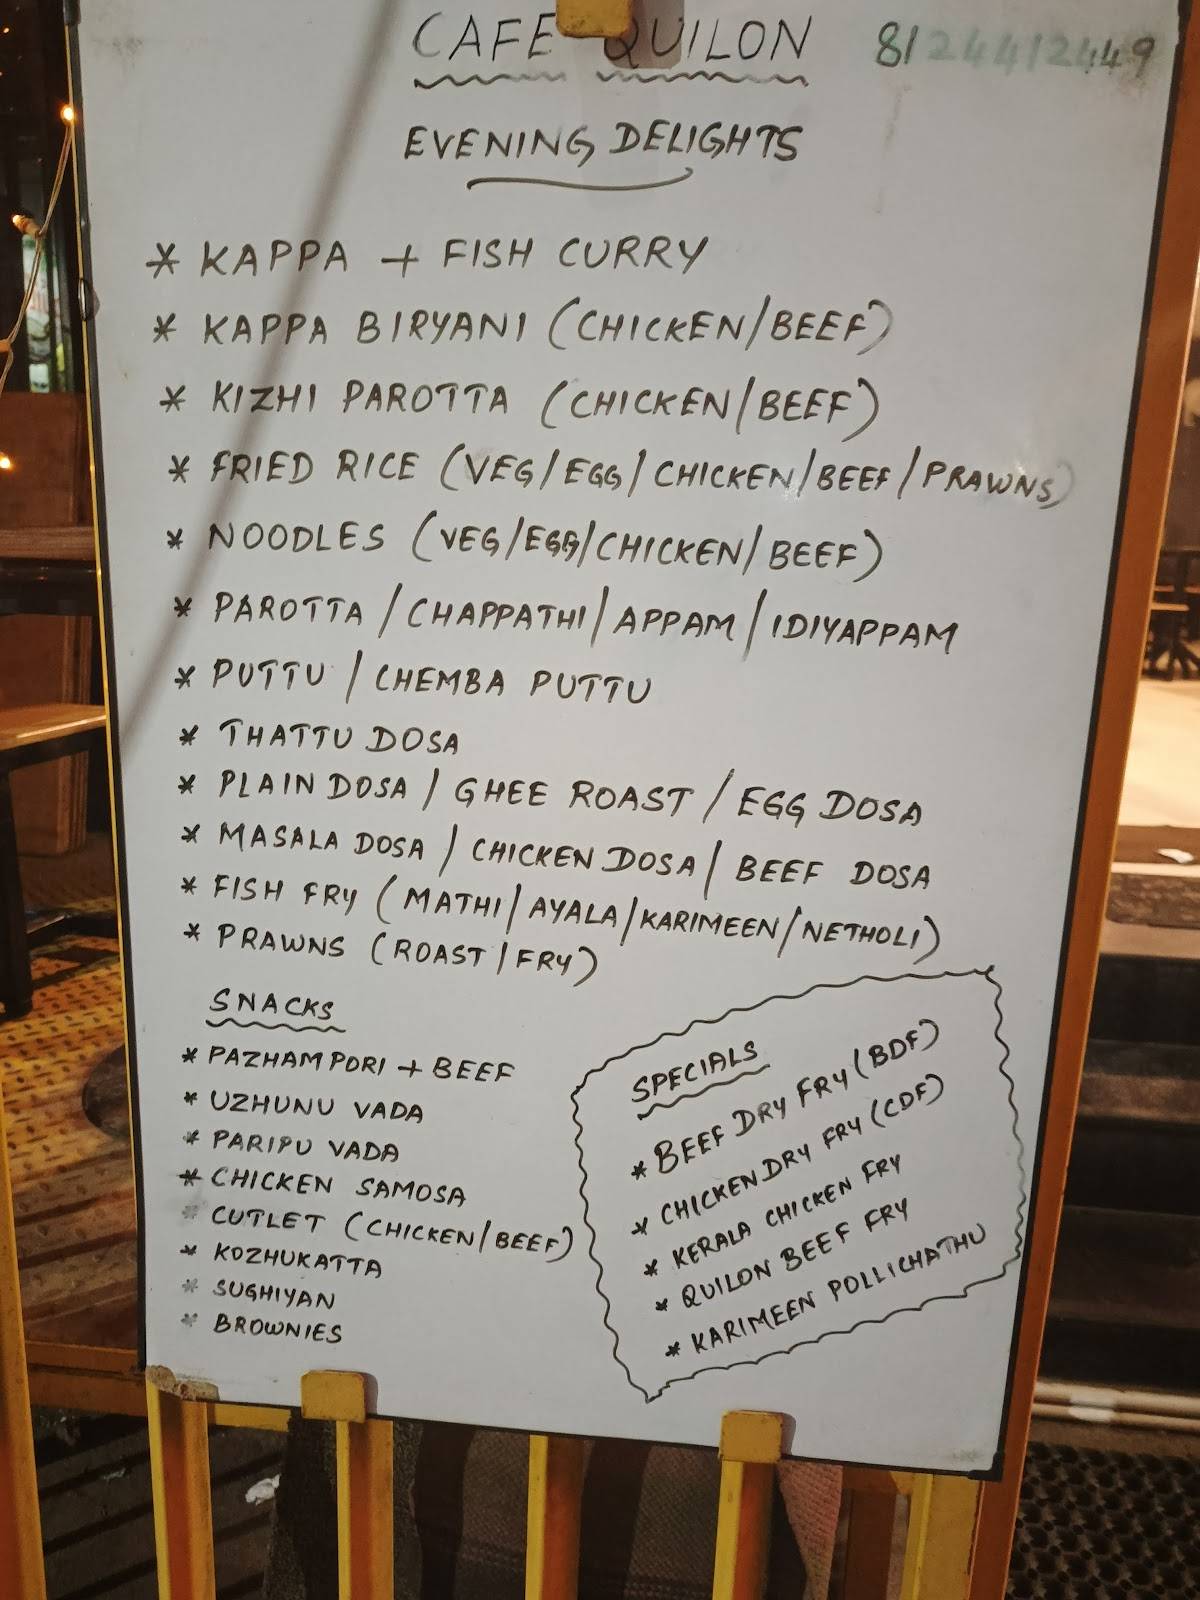 CAFE QUILON 8124412449
EVENING DELIGHTS
* KAPPA + FISH CURRY
* KAPPA BIRYANI (CHICKEN/BEEF)
* KIZHI PAROTTA (CHICKEN/BEEF)
* FRIED RICE (VEG/EGG/CHICKEN/BEEF/PRAWNS)
* NOODLES (VEG/EGG/CHICKEN/BEEF)
* PAROTTA/CHAPPATHI/APPAM/IDIYAPPAM
* PUTTU/CHEMBA PUTTU
* THATTU DOSA
* PLAIN DOSA/GHEE ROAST/EGG DOSA
* MASALA DOSA/CHICKEN DOSA/BEEF DOSA
* FISH FRY (MATHI/AYALA/KARIMEEN/NETHOLI)
* PRAWNS (ROAST/FRY)
SNACKS
* PAZHAMPORI + BEEF
* UZHUNU VADA
* PARIPU VADA
* CHICKEN SAMOSA
* CUTLET (CHICKEN/BEEF)
* KOZHUKATTA
* SUGHIYAN
* BROWNIES
SPECIALS
* BEEF DRY FRY (BDF)
* CHICKEN DRY FRY (CDF)
* KERALA CHICKEN FRY
* QUILON BEEF FRY
* KARIMEEN POLLICHATHU